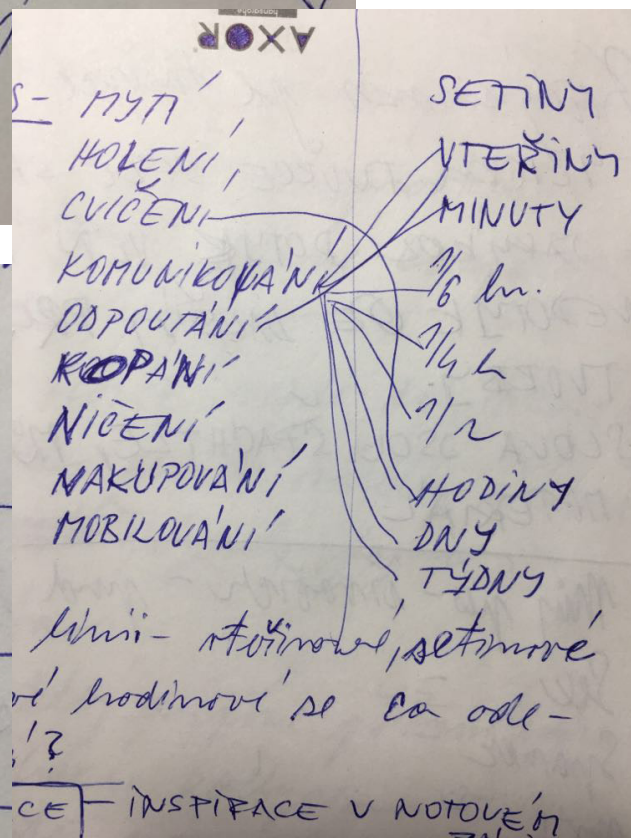 AXOR
hansgrohe
S- MYTÍ
HOLENÍ
CVIČENÍ
KOMUNIKOVÁNÍ
ODPOUTÁNÍ
KOPÁNÍ
NIČENÍ
NAKUPOVÁNÍ
MOBILOVÁNÍ
SETINY
VTEŘINY
MINUTY
1/6 hn.
1/4 h
1/2
HODINY
DNY
TÝDNY
linii - vteřinové, setinové
vé hodinové se co ode-
í?
CE - INSPIRACE V NOTOVÉM